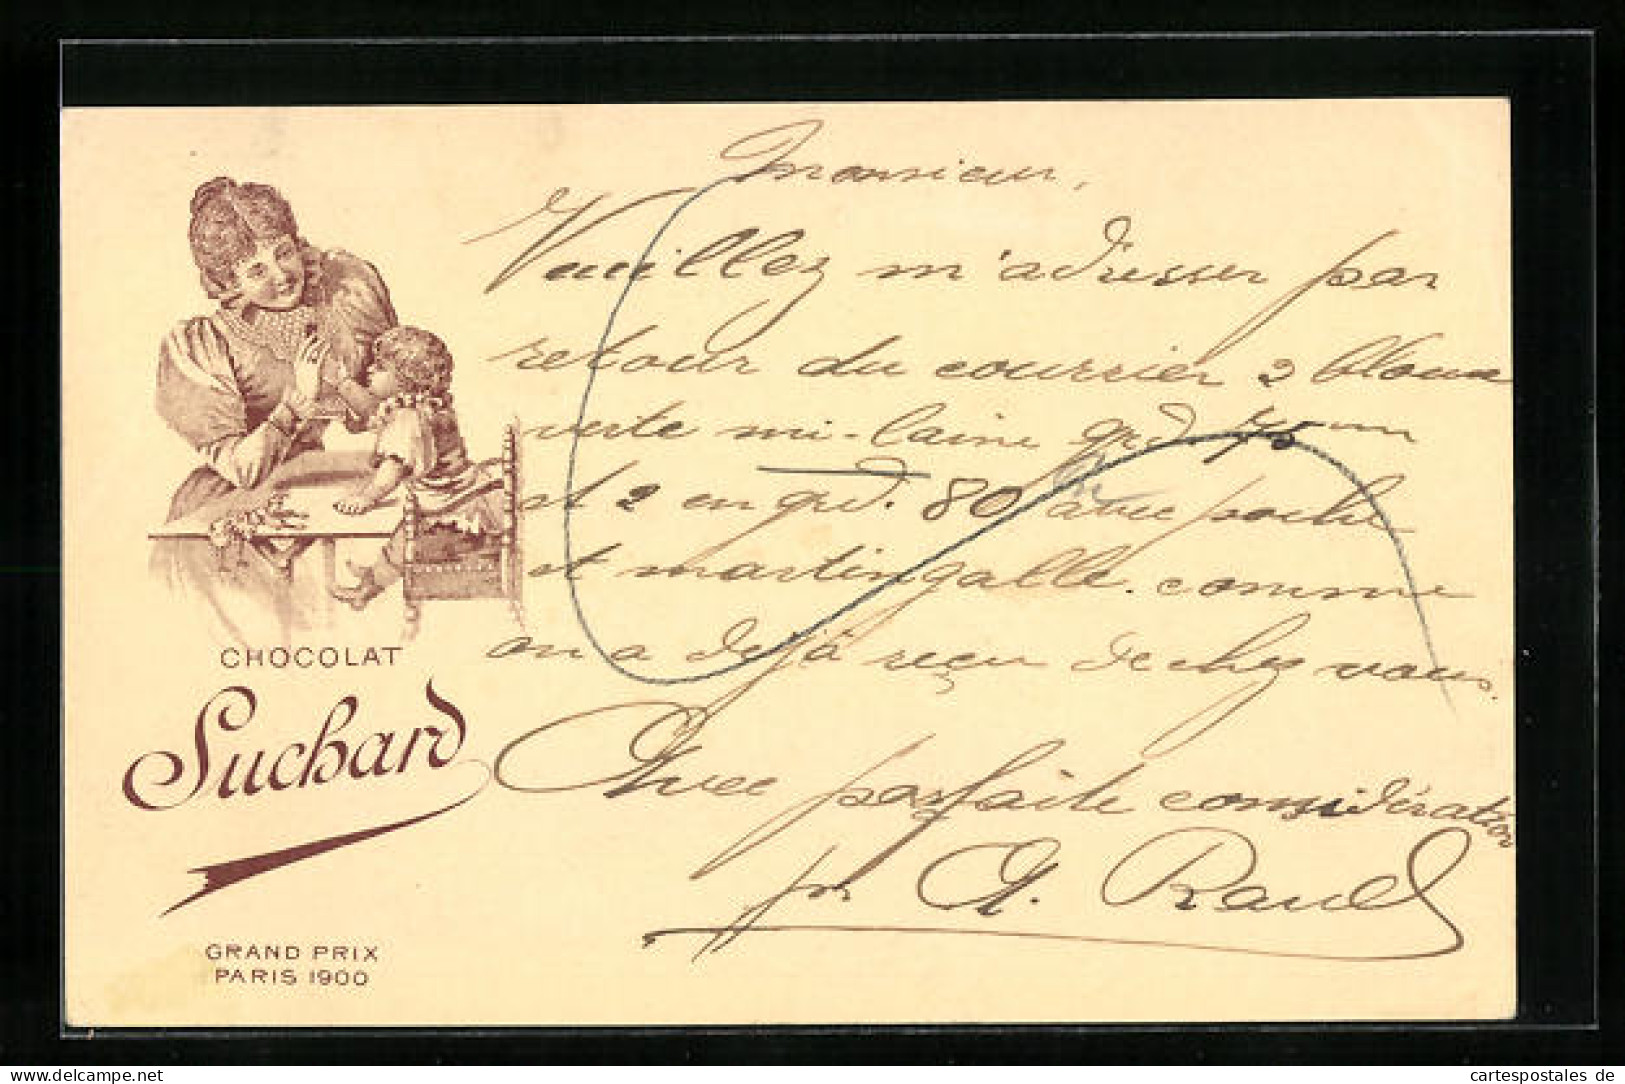 Monsieur,
Veuillez m'adresser par
retour du courrier 2 blouses
verte mi-laine grd. 75 cm
et 2 en grd. 80 avec poche
et martingalle. comme
on a déjà reçu de chez vous.
Avec parfaite considération
pr A.
CHOCOLAT
Suchard
GRAND PRIX
PARIS 1900
www.cartespostales.de
cartespostales de